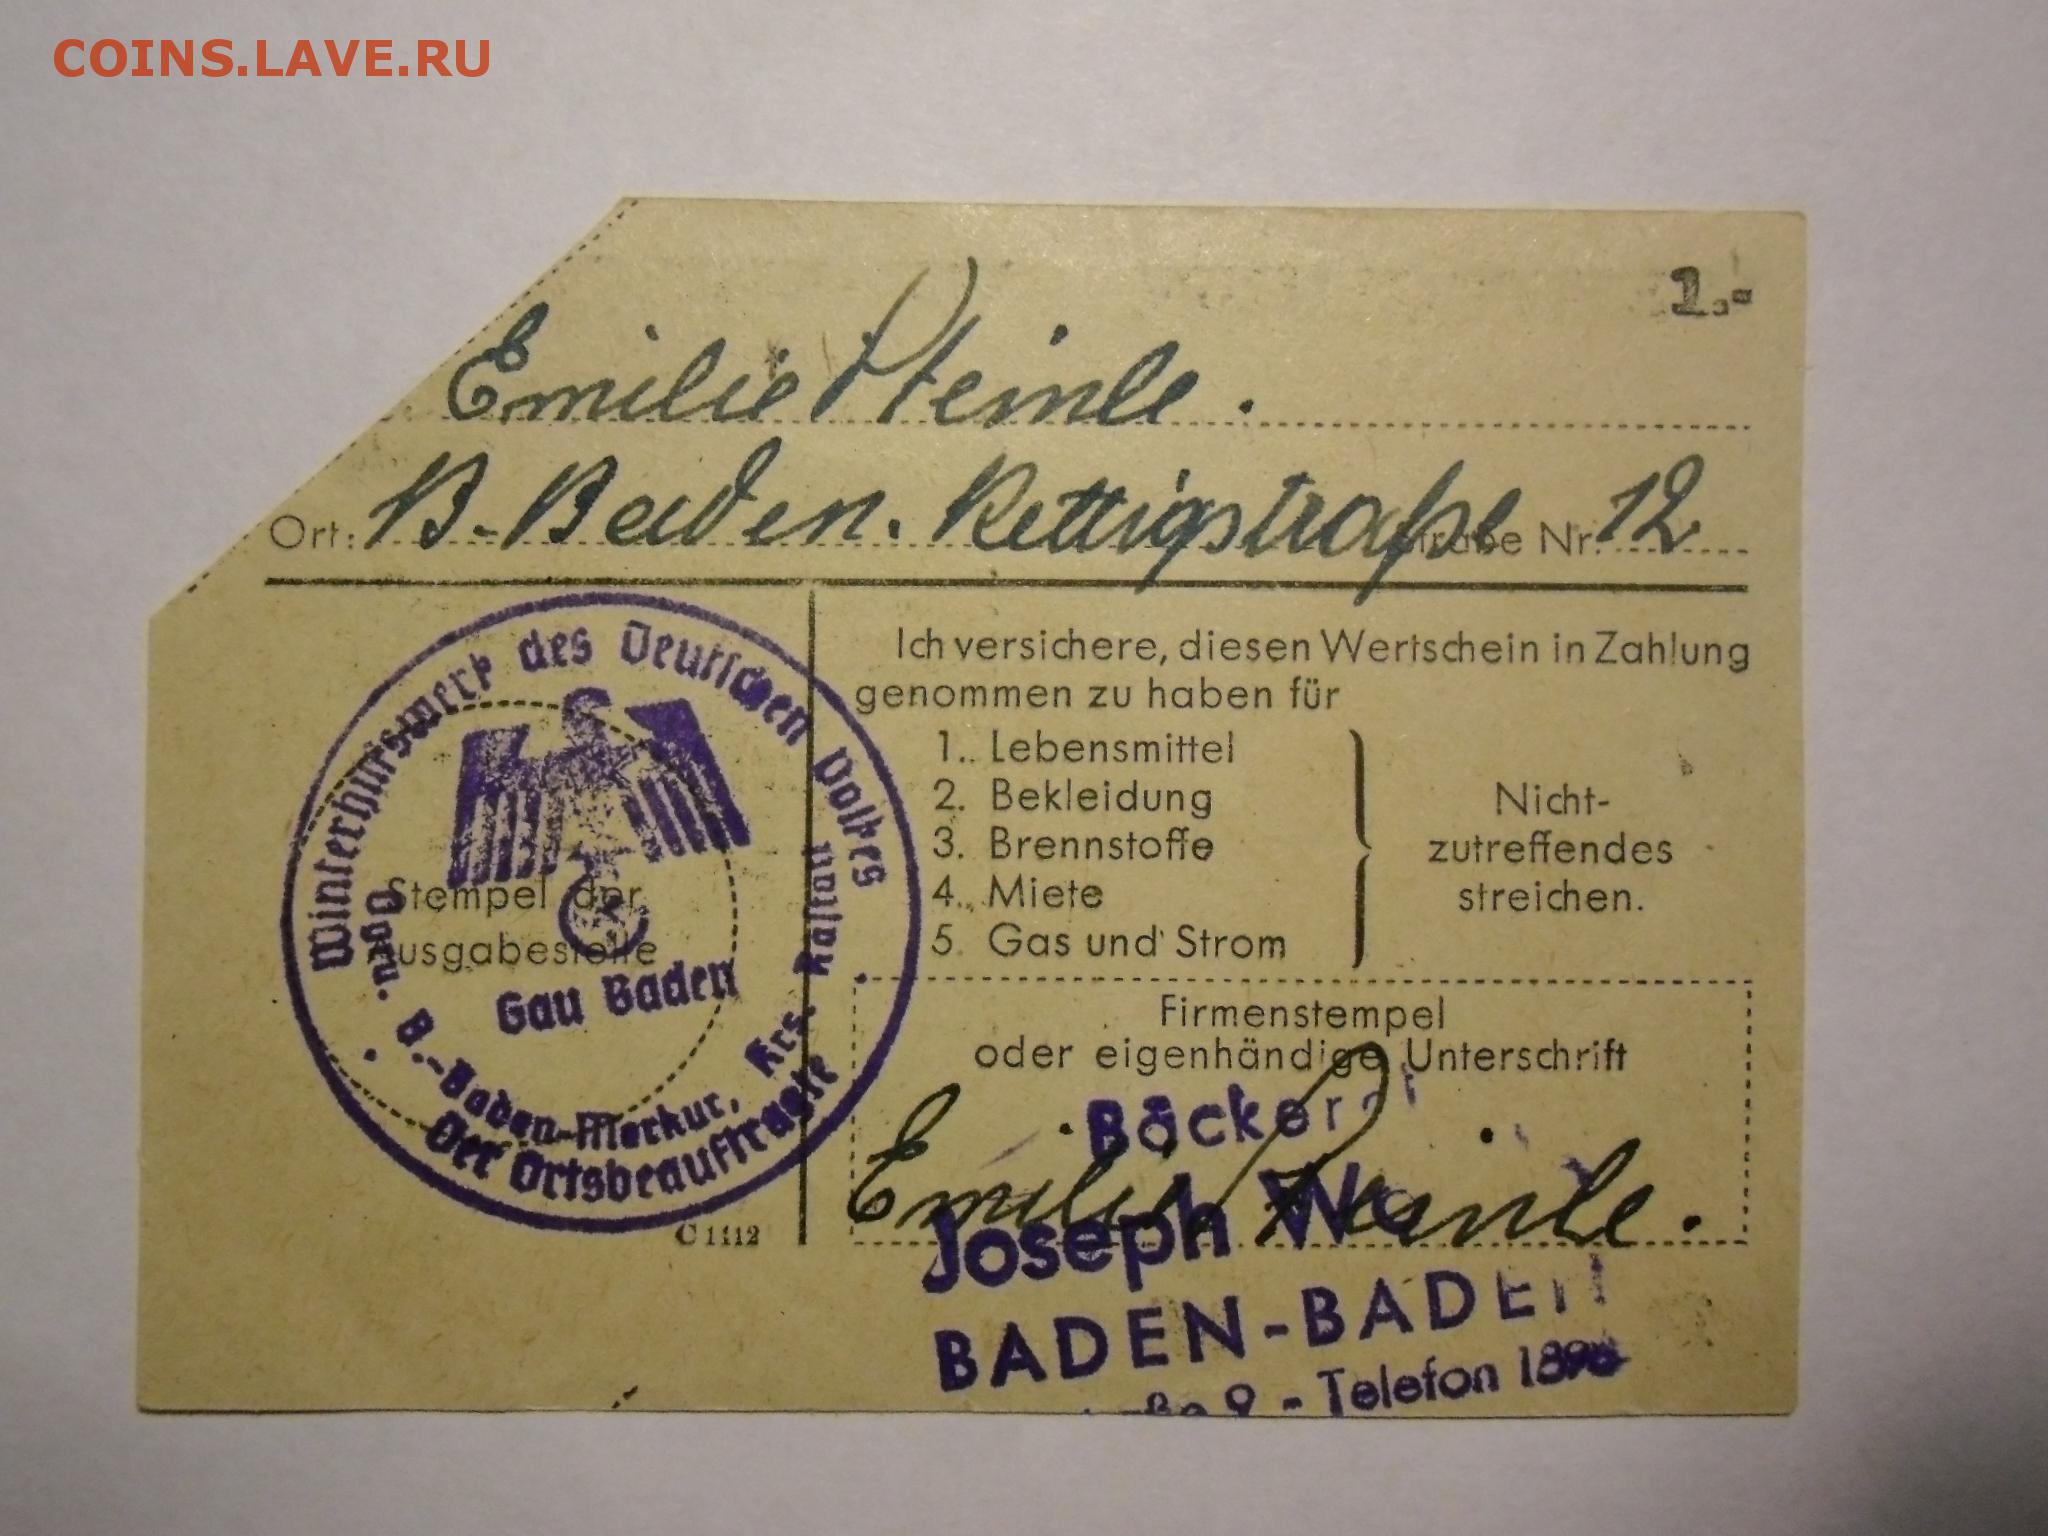 COINS.LAVE.RU
1.-
Emilie Heinle.
Ort: B.-Baden. Rettigstraße Straße Nr. 12
Winterhilfswerk des Deutschen Volkes
Gau Baden
Ogru. B.-Baden-Merkur, Krs. Rastatt
Der Ortsbeauftragte
Stempel der
Ausgabestelle
C 1112
Ich versichere, diesen Wertschein in Zahlung
genommen zu haben für
1. Lebensmittel
2. Bekleidung
3. Brennstoffe
4. Miete
5. Gas und Strom
Nicht-
zutreffendes
streichen.
Firmenstempel
oder eigenhändige Unterschrift
Emilie Heinle.
Bäckerei
Joseph
BADEN-BADEN
9 - Telefon